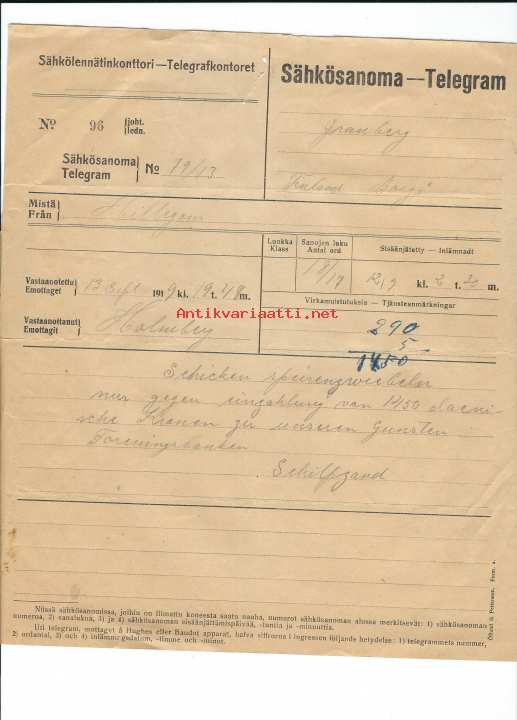 Sähkölennätinkonttori—Telegrafkontoret
Sähkösanoma—Telegram
No 96 joht. ledn.
Granberg
Sähkösanoma Telegram No 19/13
Borgå
Mistä Från Hillegom
Luokka Klass
Sanojen luku Antal ord
Sisäänjätetty — Inlämnadt
18/17
12/9 kl. 2 t. 30 m.
Vastaanotettu Emottaget 13 Sept 1919 kl. 19 t. 48 m.
Virkamuistutuksia — Tjänsteanmärkningar
Vastaanottanut Emottagit Holmberg
290
5
1450
Antikvariaatti.net
Schicken
nur gegen einzahlung von 1450 daeni-
sche Kronen zu unseren Gunsten
Foreningsbanken
Schilpzand
Niissä sähkösanomissa, joihin on liimattu koneesta saatu nauha, numerot sähkösanoman alussa merkitsevät: 1) sähkösanoman
numeroa, 2) sanalukua, 3) ja 4) sähkösanoman sisäänjättämispäivää, -tuntia ja -minuuttia.
Uti telegram, mottagvt å Hughes eller Baudot apparat, hafva siffrorna i ingressen följande betydelse: 1) telegrammets nummer,
2) ordantal, 3) och 4) inlämningsdatum, -timme och -minut.